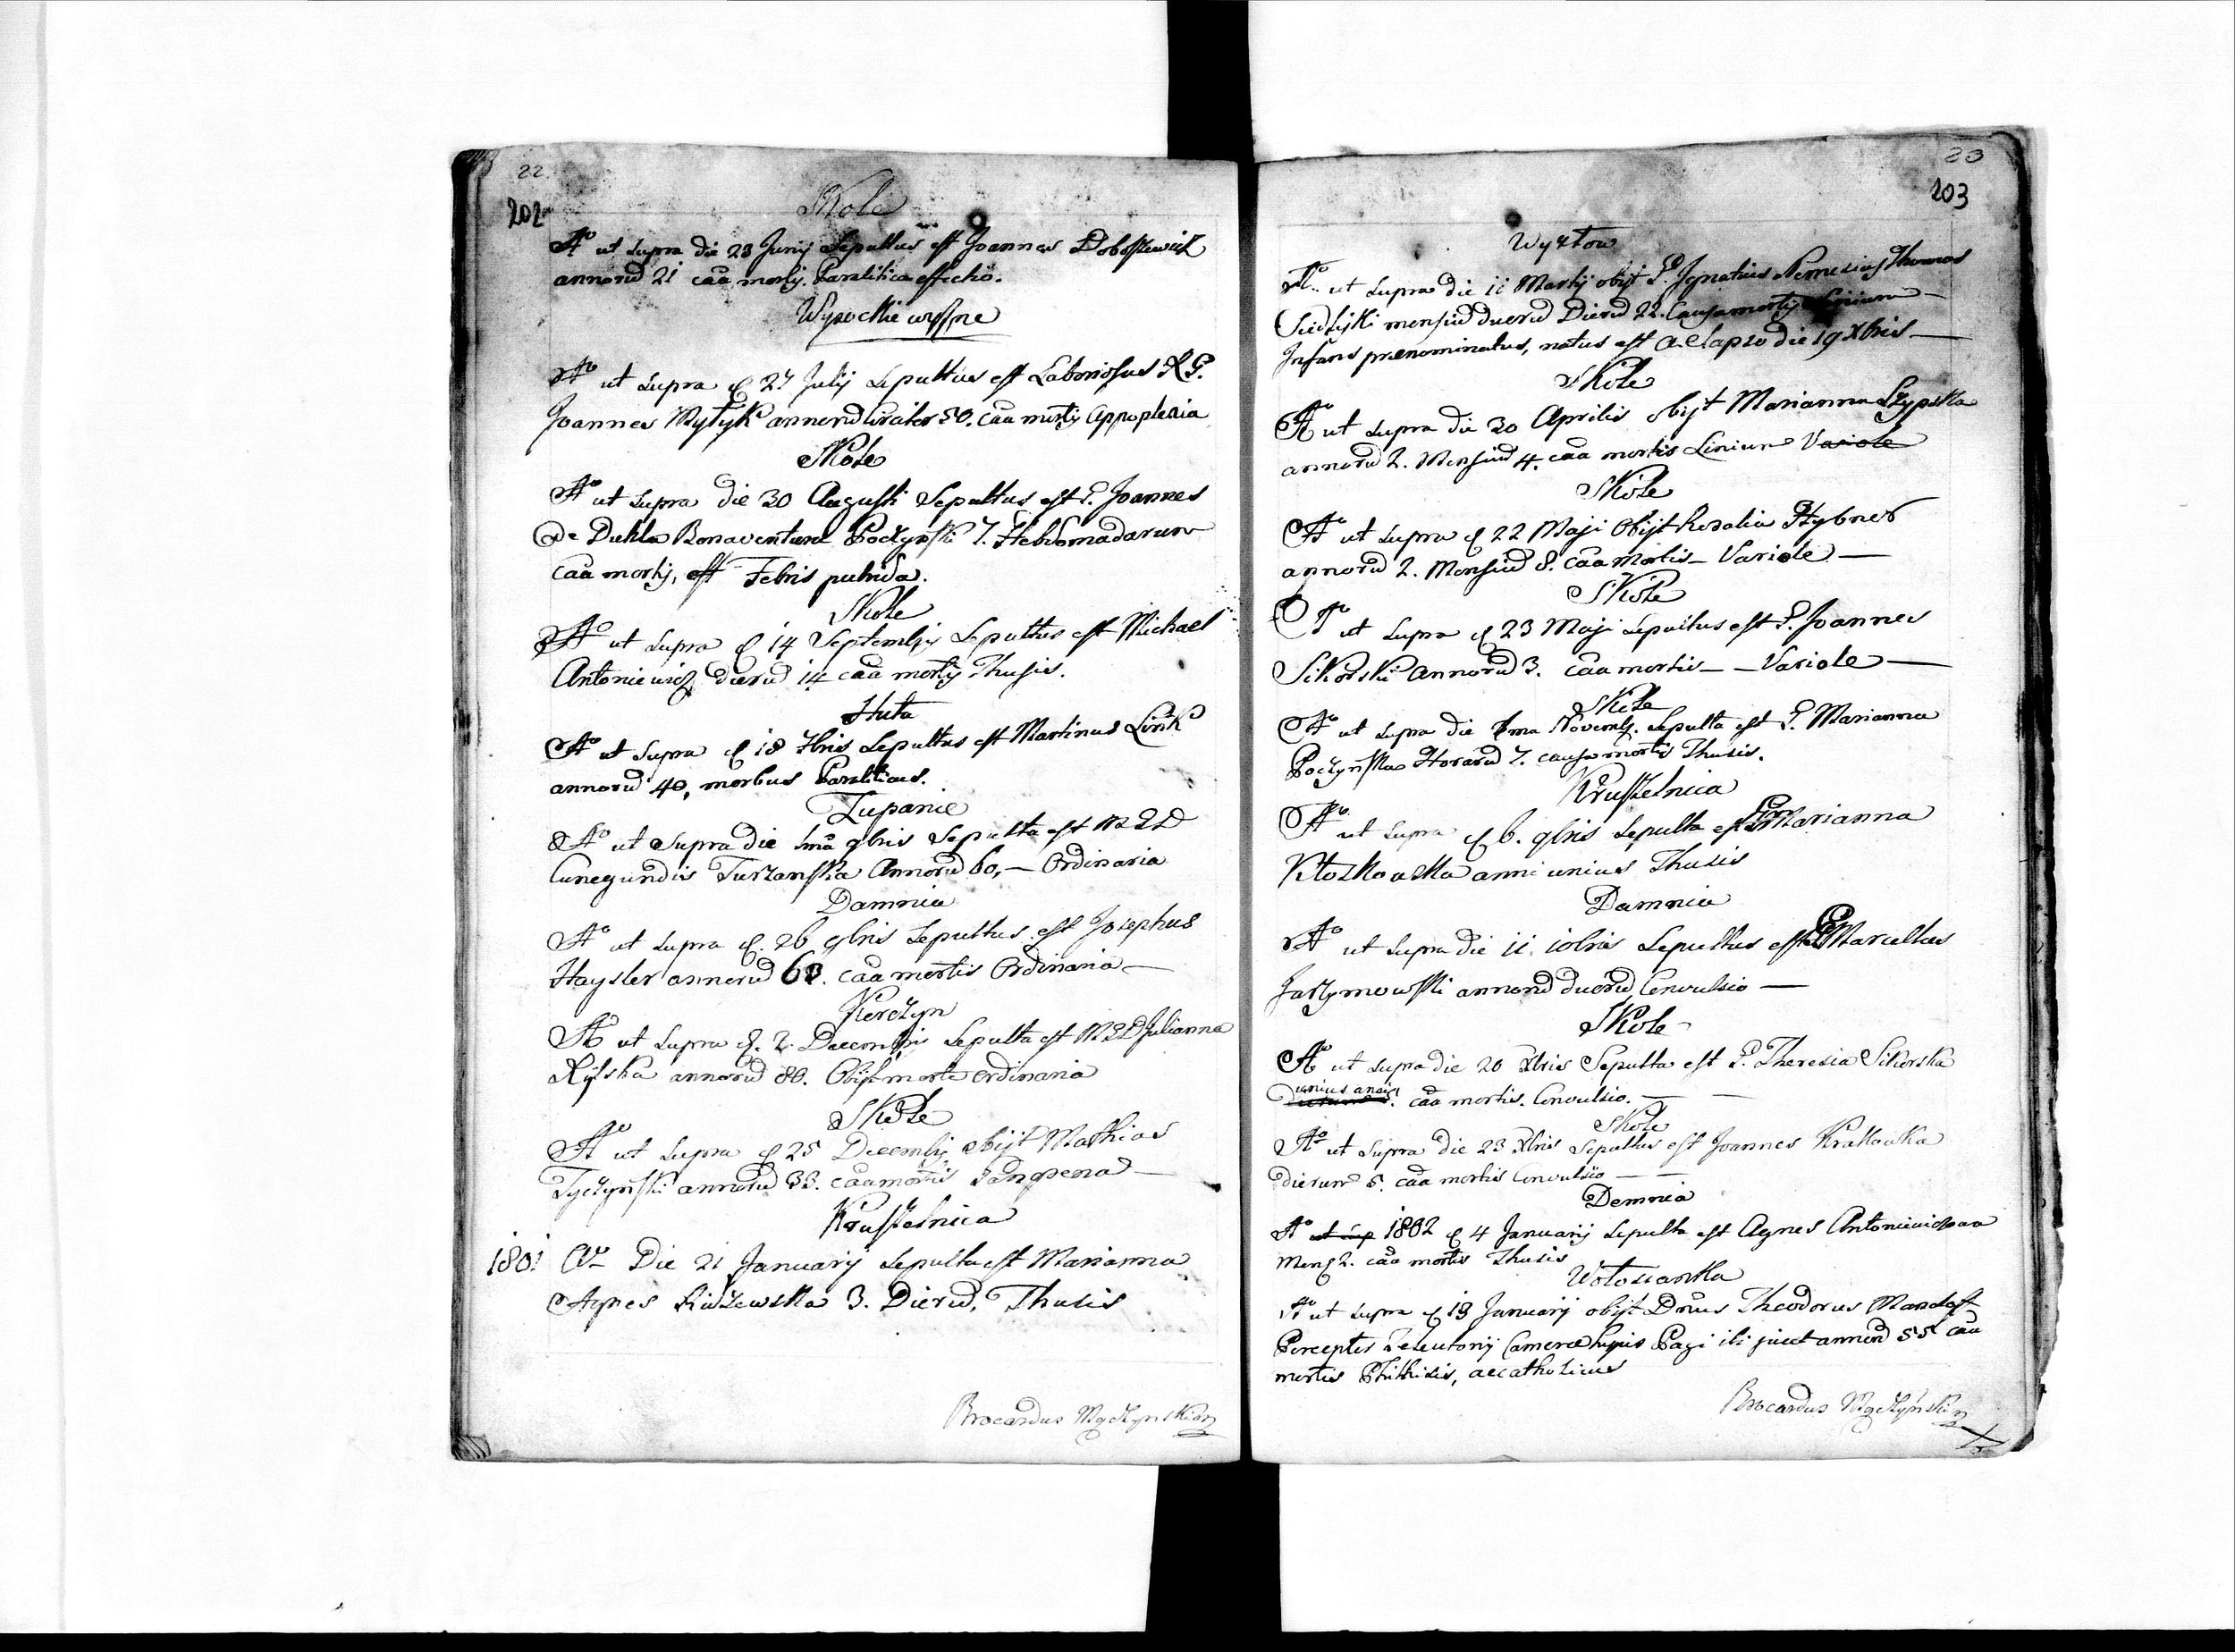 22.
202
Skole
Aº ut supra die 23 Junij Sepultus est Joannes Doboszewicz
annorū 21 caa mortis. Paralitica affectio.
Wysockie wyszne
Aº ut supra d 27 Julij Sepultus est Laboriosus R. G.
Joannes Wytyk annorū circiter 50. caa mortis Appoplexia
Skole
Aº ut supra die 30 Augusti Sepultus est P. Joannes
de Dukla Bonaventura Poczynski 7. Hebdomadarum
caa mortis, est Febris putrida.
Skole
Aº ut supra d 14 Septembris Sepultus est Michael
Antoniewicz dierū 14 caa mortis Thusis.
Huta
Aº ut supra d 18 7bris Sepultus est Martinus Link
annorū 40, morbus Paraliticus.
Zupanie
Aº ut supra die 1ma 9bris Sepulta est
Cunegundis Turzanska Annorū 60, — Ordinaria
Damnia
Aº ut supra d. 26 9bris Sepultus est Josephus
Haysler annorū 63. caa mortis Ordinaria —
Korczyn
Aº ut supra d. 2. Decembris Sepulta est M D Julianna
Rylska annorū 80. Obijt morte ordinaria
Skole
Aº ut supra d 25 Decembris obijt Mathias
Tyczynski annorū 33. caa mortis Gangrena —
Kruszelnica
1801 Aº Die 21 Januarij Sepulta est Marianna
Agnes 3. Dierū, Thusis
Brocardus Mączynski
23
203
Wyztow
Aº ut supra die 11 Martij obijt P. Ignatius Nemesius Thomas
Siedliski mensiū duorū Dierū 22. Causa mortis
Infans praenominatus, natus est a. elapso die 19 Xbris —
Skole
Aº ut supra die 30 Aprilis obijt Marianna Szypska
annorū 2. Mensiū 4. caa mortis Linium Variole
Skole
Aº ut supra d 22 Maji Obijt Rosalia Hybner
annorū 2. Mensiū 8. caa Mortis — Variole —
Skole
Aº ut supra d 23 Maji Sepultus est P. Joannes
Sikorski Annorū 3. caa mortis — — Variole —
Skole
Aº ut supra die 1ma Novemb. Sepulta est P. Marianna
Poczynska Horarū 7. causa mortis Thusis.
Kruszelnica
Aº ut supra d 6. 9bris Sepulta est Marianna
Kłozkowska anni unius Thusis
Damnia
Aº ut supra die 11. 10bris Sepultus est Marcellus
Jarzymowski annorū duorū Convulsio —
Skole
Aº ut supra die 20 Xbris Sepulta est P. Theresia Sikorska
unius anni caa mortis. Convulsio. — —
Skole
Aº ut supra die 23 Xbris Sepultus est Joannes Krakowka
dierum 5. caa mortis Convulsio — —
Demnia
Aº ut sup 1802 d 4 Januarij Sepulta est Agnes Antoniewiczowa
Mens 2. caa mortis Thusis
Wołosianka
Aº ut supra d 13 Januarij obijt Dnus Theodorus Mandast
Perceptor Camerae hujus Pagi ibi jacet annorū 55 caa
mortis Phthisis, accatholicus
Brocardus Mączynski